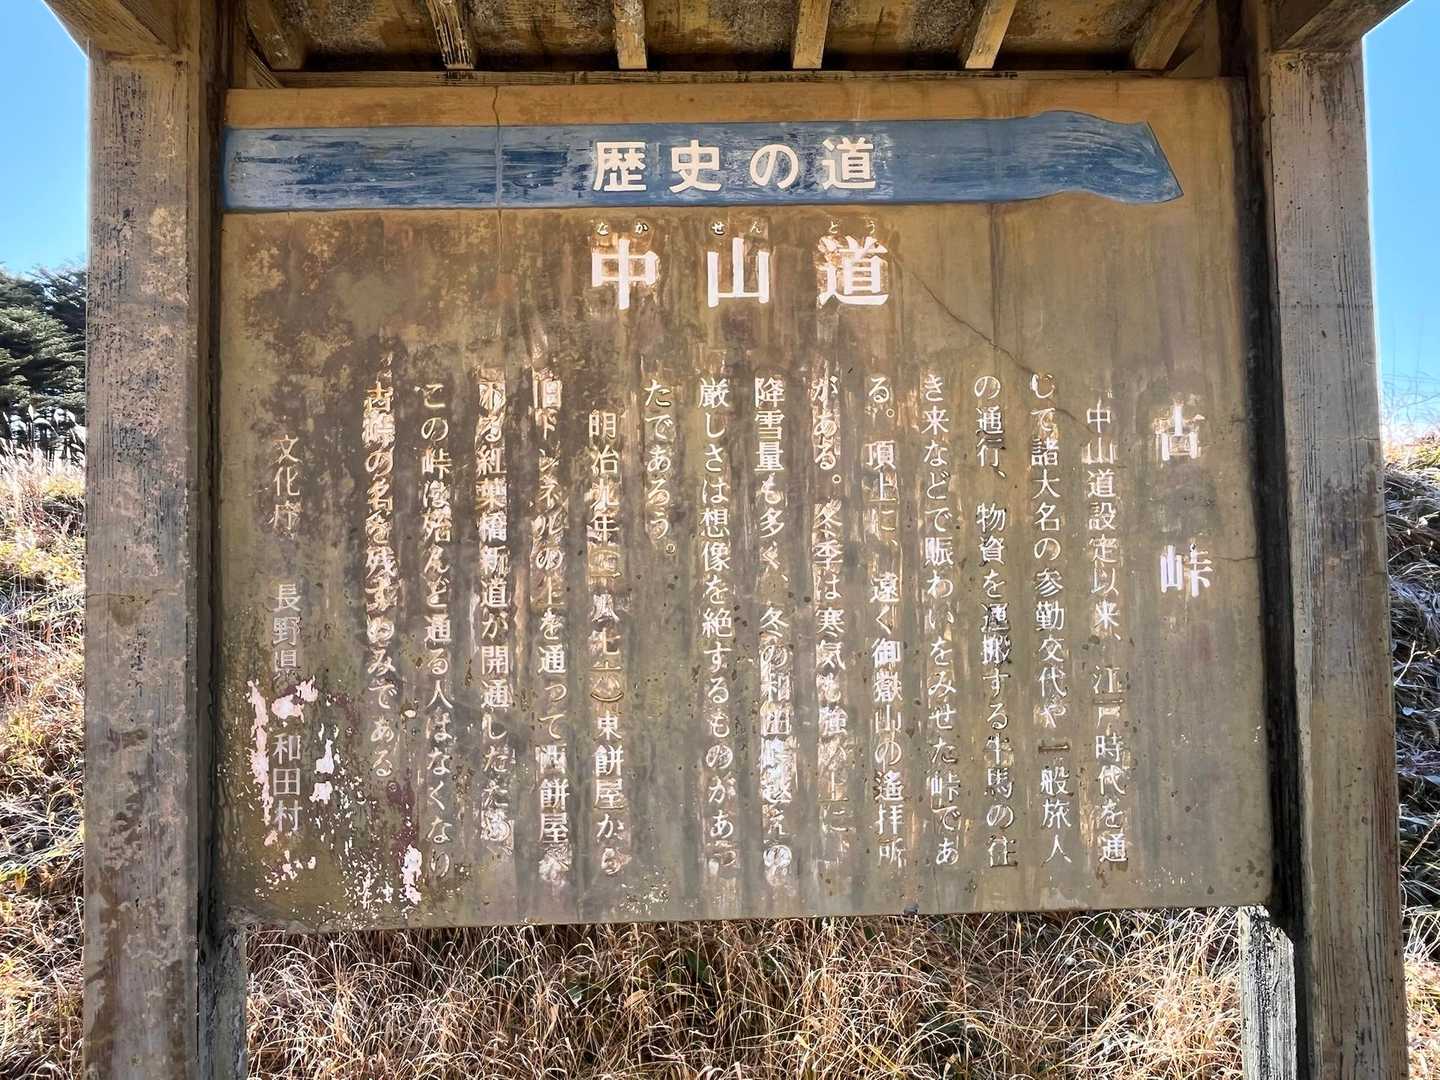 歴史の道
なか せん どう
中山道
古峠
中山道設定以来、江戸時代を通
じて諸大名の参勤交代や一般旅人
の通行、物資を運搬する牛馬の往
き来などで賑わいをみせた峠であ
る。頂上に、遠く御嶽山の遙拝所
がある。冬季は寒気も強い上に
降雪量も多く、冬の和田峠越えの
厳しさは想像を絶するものがあっ
たであろう。
明治九年(一八七六)東餅屋から
旧トンネルの上を通って西餅屋へ
下る紅葉橋新道が開通したため
この峠は殆んど通る人はなくなり
古峠の名を残すのみである。
文化庁 長野県 和田村